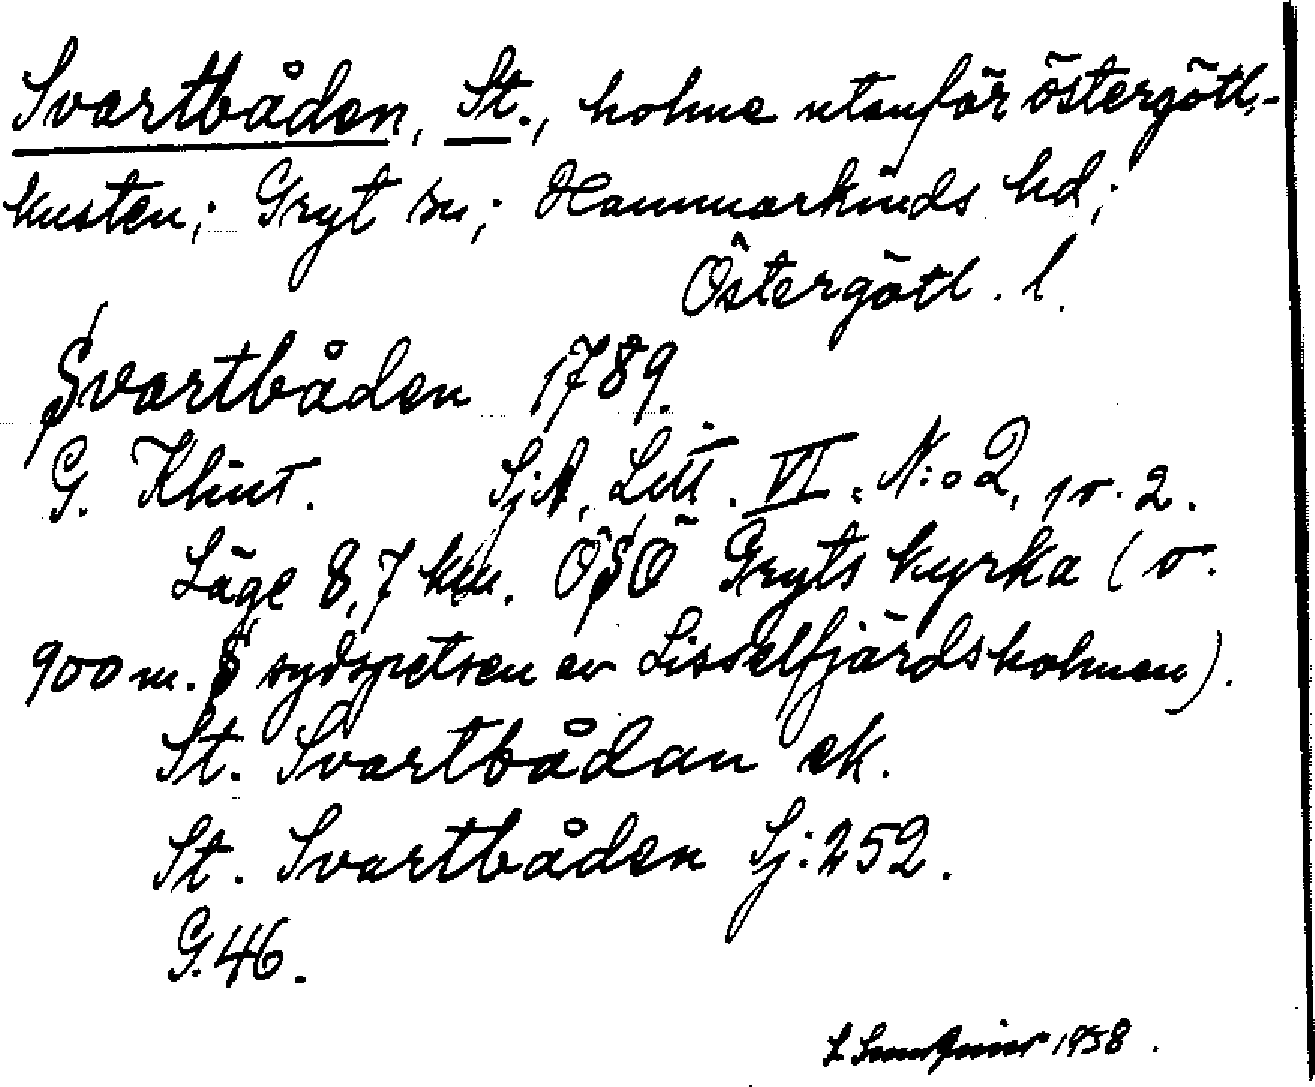 Svartbåden, St., holme utanför östergötl.-
kusten; Gryt sn; Hammarkinds hd;
Östergötl. l.
Svartbåden 1789.
G. Klint. SjA, Litt. VI. N:o 2, v. 2.
Läge 8,7 km. OSO Gryts kyrka (o.
900 m. S sydspetsen av Lisselfjärdsholmen).
St. Svartbådan ek.
St. Svartbåden Sj:252.
G.46.
1938.